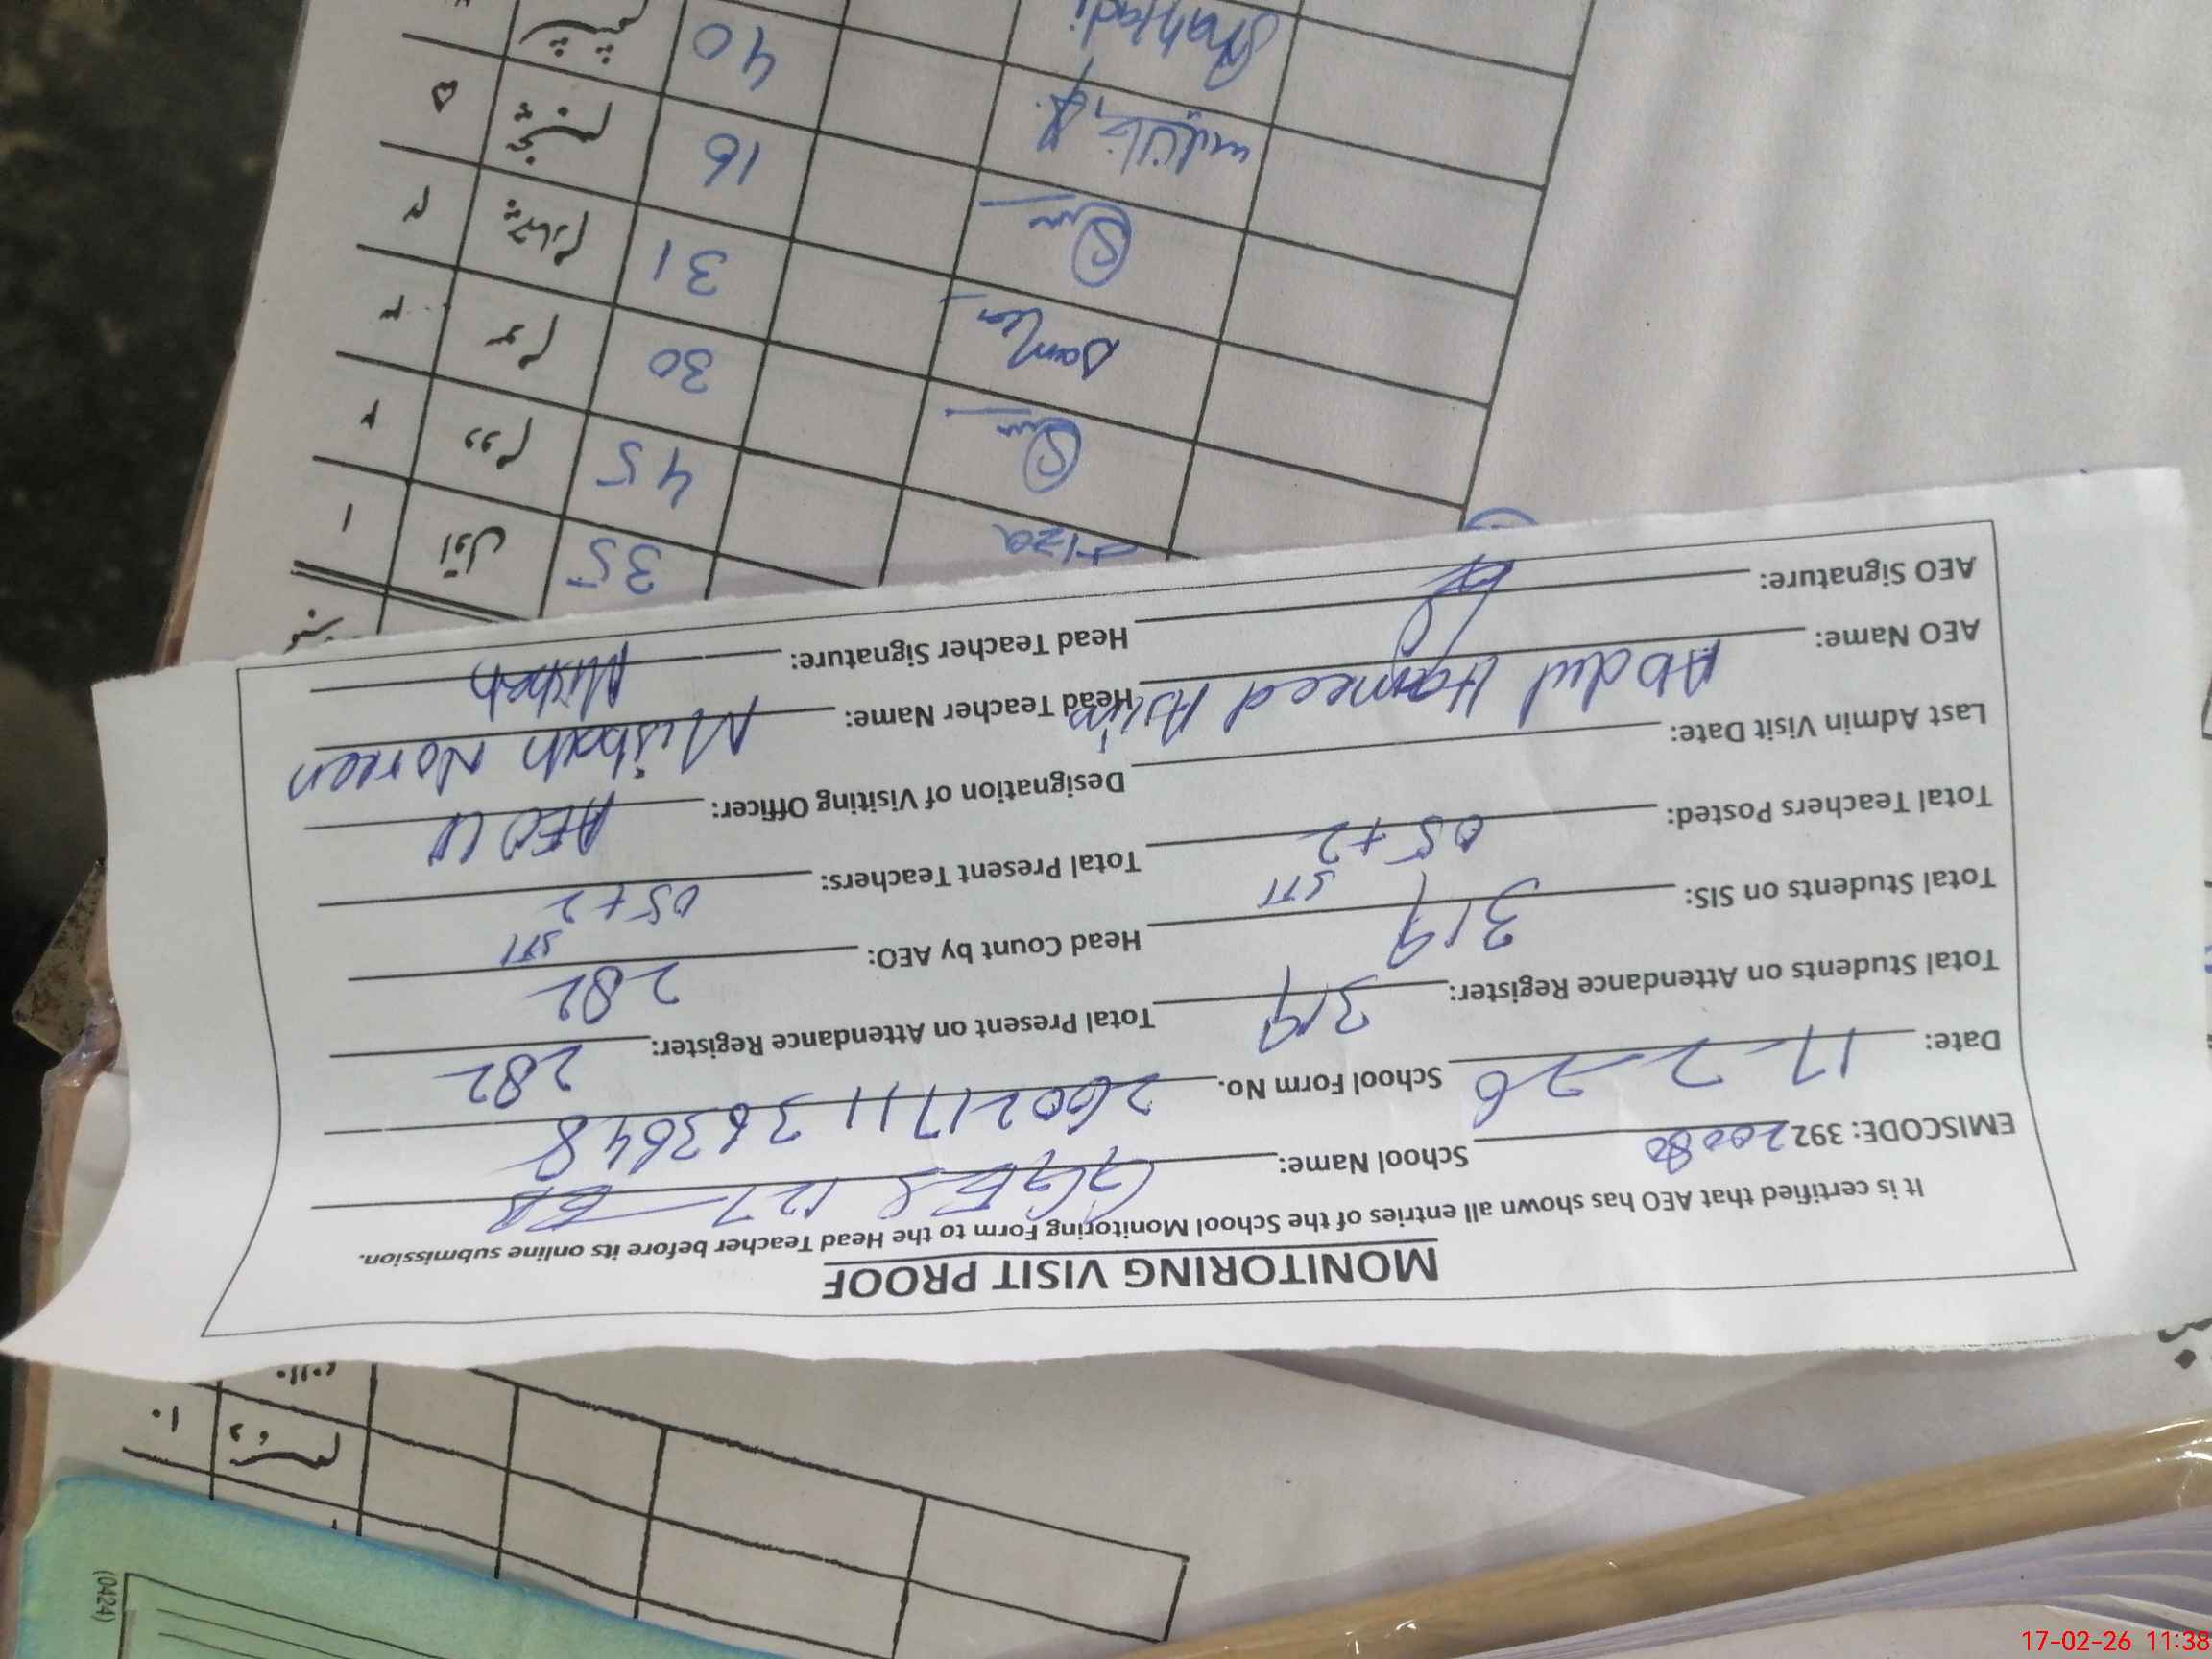 MONITORING VISIT PROOF
It is certified that AEO has shown all entries of the School Monitoring Form to the Head Teacher before its online submission.
EMISCODE: 39220080 School Name: GGES 127 EB
Date: 17-2-26 School Form No. 26021711363648
Total Students on Attendance Register: 319 Total Present on Attendance Register: 282
Total Students on SIS: 319 Head Count by AEO: 282
Total Teachers Posted: 05+2 STI Total Present Teachers: 05+2 STI
Last Admin Visit Date: Designation of Visiting Officer: AEO
AEO Name: Abdul Hameed Asim Head Teacher Name: Misbah Noreen
AEO Signature: Head Teacher Signature: Misbah
۱ اوّل 35
۲ دوم 45
۳ سوم 30
۴ چہارم 31
۵ پنجم 16
40
۱۰ دہم
(0424)
17-02-26 11:38